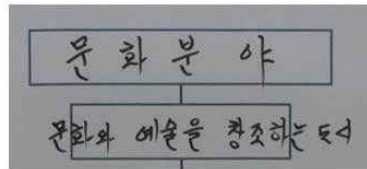 문화분야
문화와 예술을 창조하는 도시